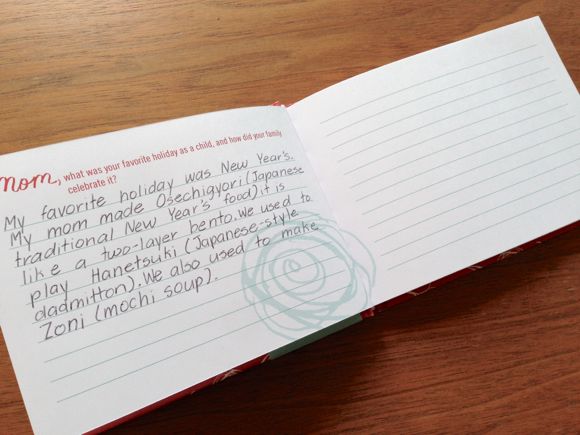 mom, what was your favorite holiday as a child, and how did your family
celebrate it?
My favorite holiday was New Year's.
My mom made Osechigyori (Japanese
traditional New Year's food) it is
like a two-layer bento. We used to
play Hanetsuki (Japanese-style
dadmitton). We also used to make
Zoni (mochi soup).